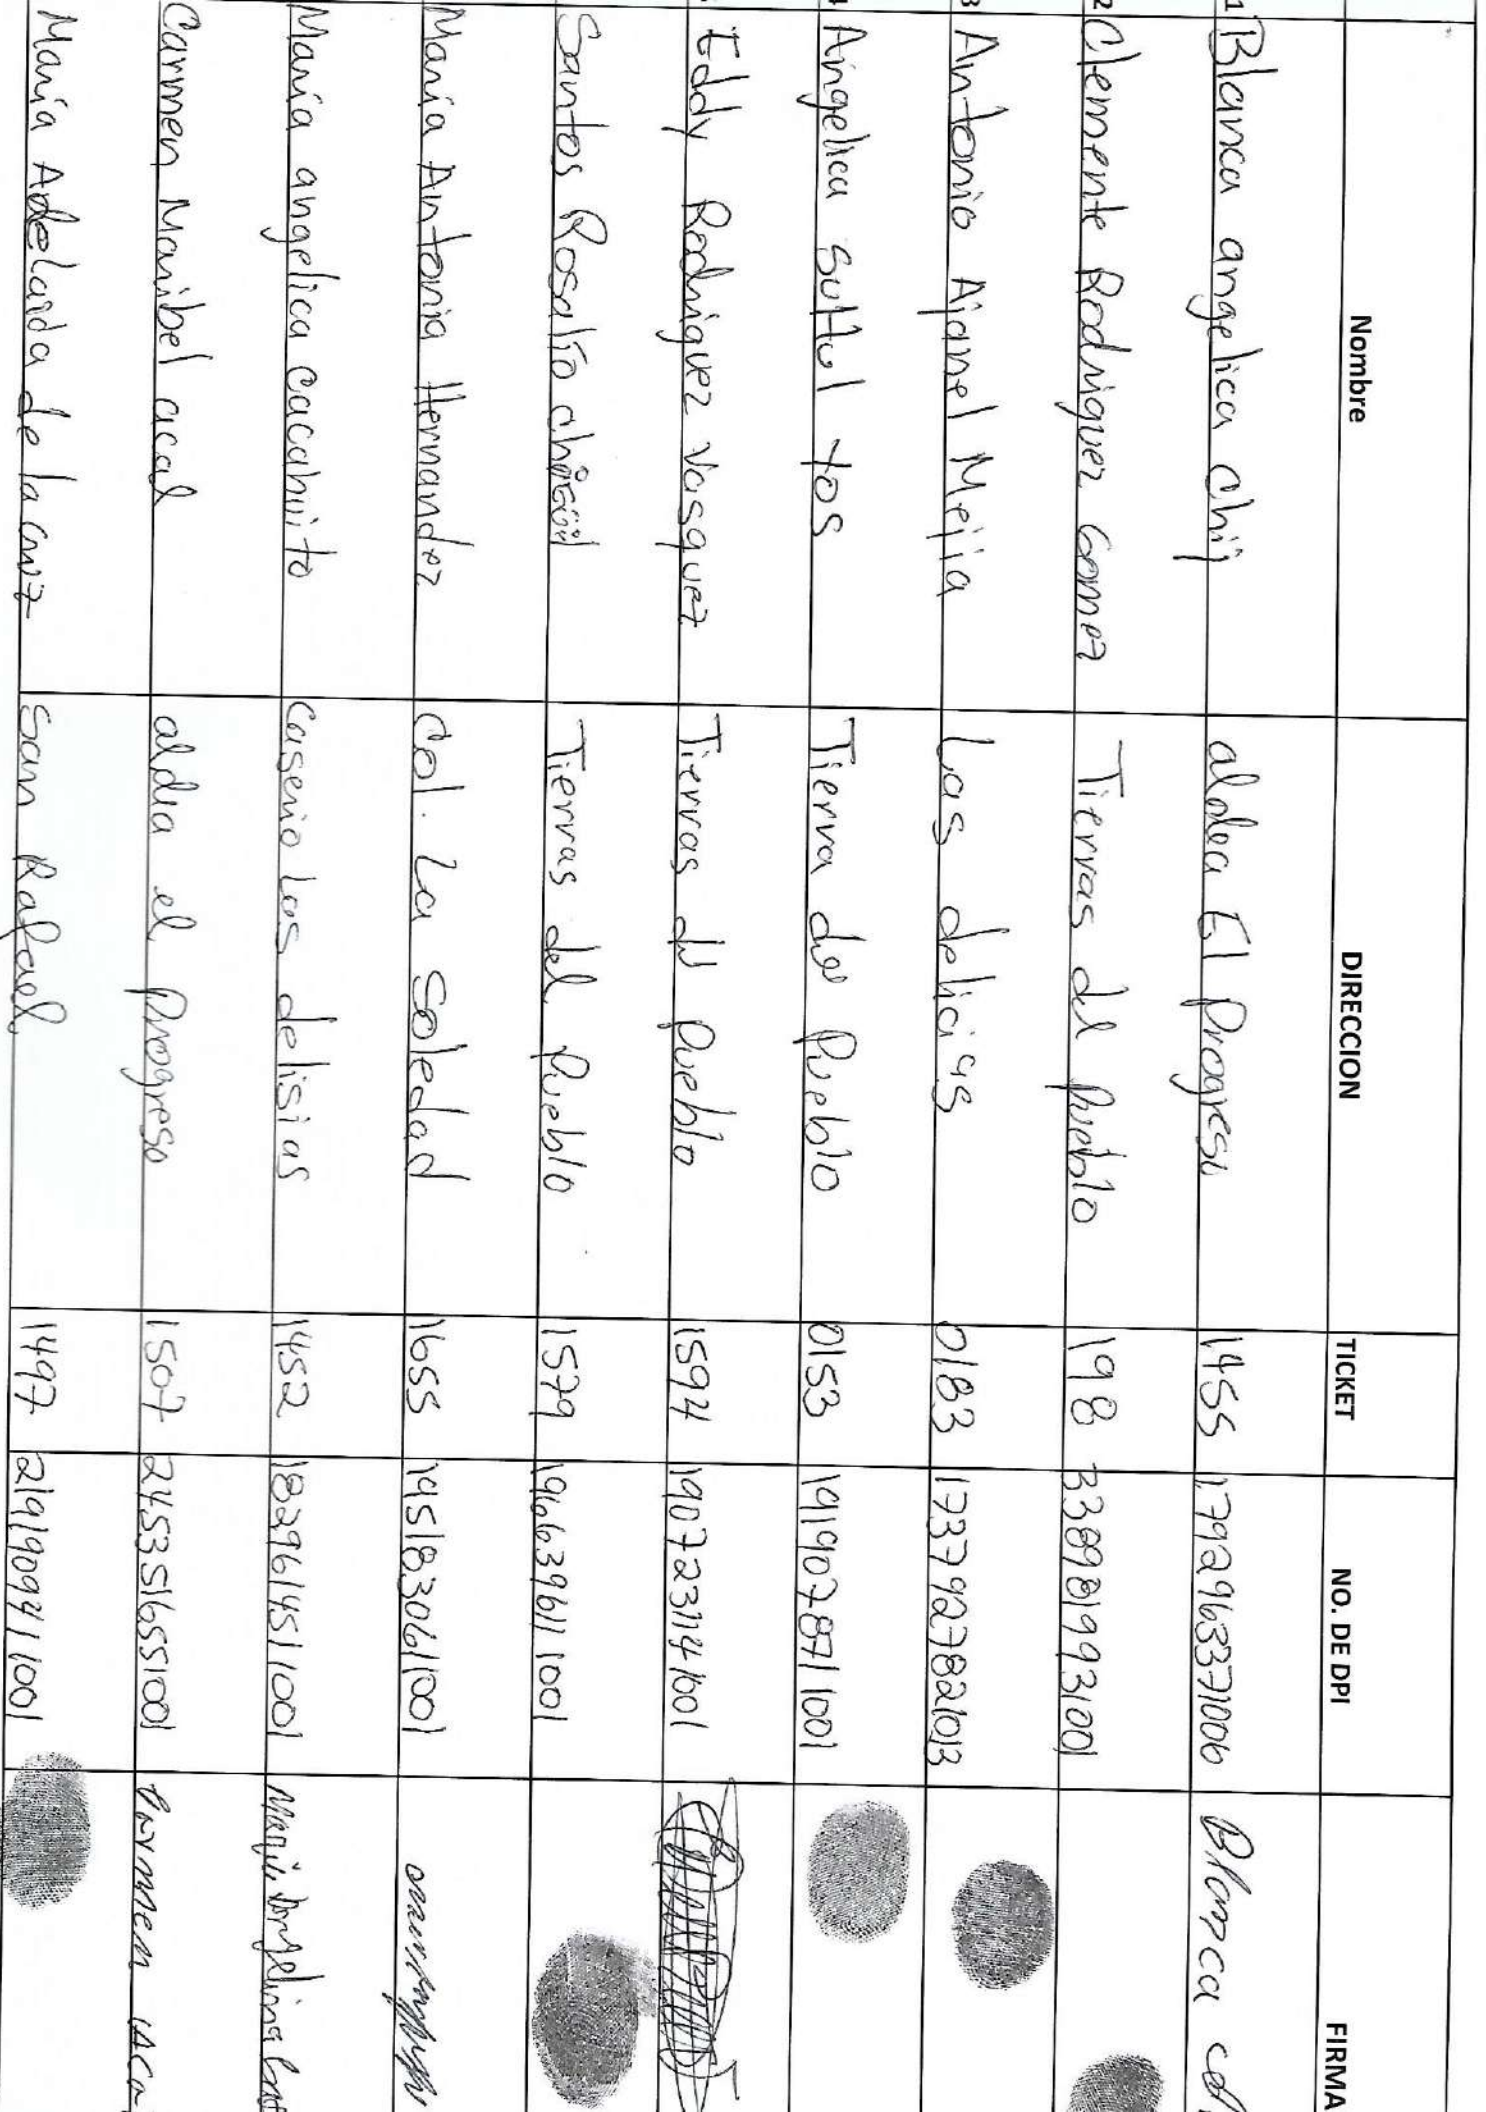 Nombre DIRECCION TICKET NO. DE DPI FIRMA
1 Blanca angelica chij aldea El Progreso 1455 1792963371006 Blanca
2 Clemente Rodriguez Gomez Tierras del Pueblo 198 3389819931001
3 Antonio Ajanel Mejia Las delicias 0183 1737927821013
Angelica suttul tos Tierra del Pueblo 0153 1919078711001
Eddy Rodriguez Vasquez Tierras del Pueblo 1594 1907231141001
Santos Rosalío Tierras del Pueblo 1579 1966396111001
Maria Antonia Hernandez Col. La Soledad 1655 1951830611001
Maria angelica cacahuito Caserio Las delisias 1452 1829614511001
Carmen Maribel acal aldia el Progreso 1507 2453516551001 Carmen
María Adelaida de la Cruz San Rafael 1497 2191909411001